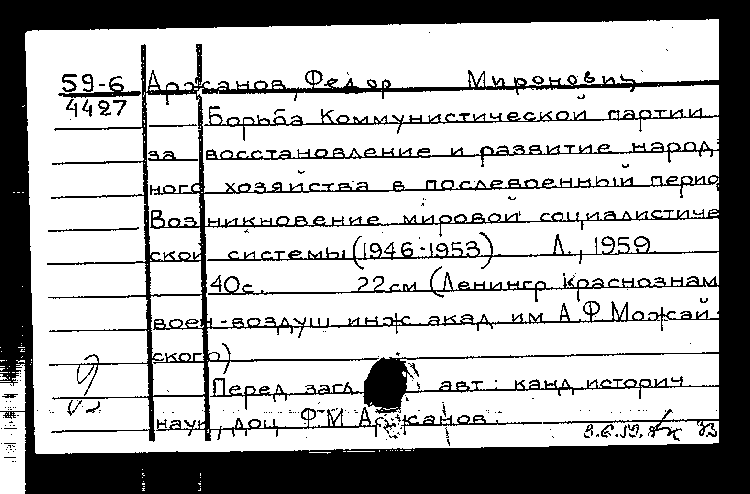 59-6 Аржанов, Федор Миронович
4427 Борьба Коммунистической партии
за восстановление и развитие народ-
ного хозяйства в послевоенный перио
Возникновение мировой социалистиче
ской системы (1946-1953). Л., 1959.
40с. 22см (Ленингр. Краснознам.
воен-воздуш. инж. акад. им А.Ф. Можай-
ского)
Перед загл. авт.: канд. историч.
наук, доц. Ф.М. Аржанов.